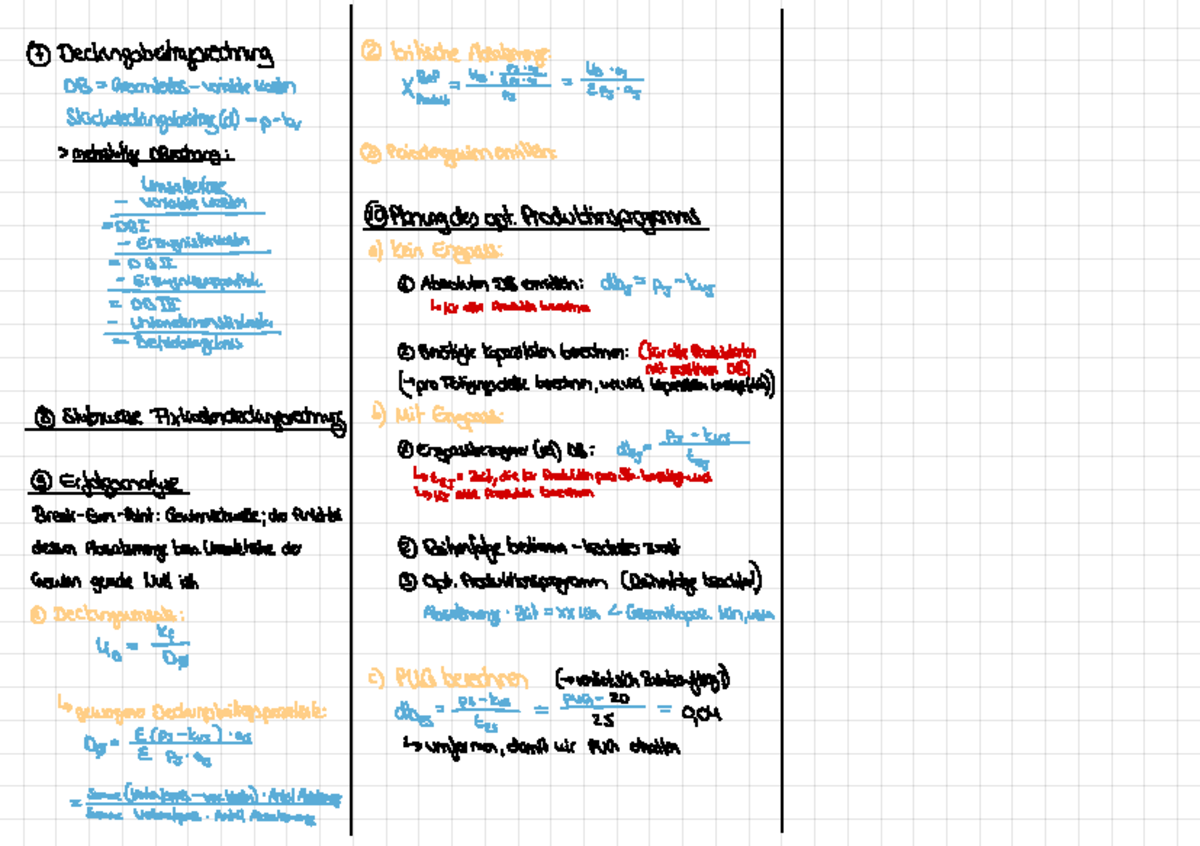 ⑦ Deckungsbeitragsrechnung
DB = Gesamterlös - variable Kosten
Stückdeckungsbeitrag (d) = p - kv
> mehrstufige DBrechnung:
Umsatzerlöse
- variable Kosten
= DB I
- Erzeugnisfixkosten
= DB II
- Erzeugnisgruppenfixk.
= DB III
- Unternehmensfixkosten
= Betriebsergebnis
⑧ Stufenweise Fixkostendeckungsrechnung
⑨ Erfolgsanalyse
Break-Even-Point: Gewinnschwelle; der Punkt bei
dessen Absatzmenge bzw. Umsatzhöhe der
Gewinn gerade Null ist
① Deckungsumsatz:
U_D = K_f / D_ø
↳ gewogene Deckungsbeitragsprozentsatz:
D_ø = Σ (p_j - k_vj) · a_j / Σ p_j · a_j
= Summe (Verkaufspreis - var. Kosten) · Anteil Absatzmenge / Summe Verkaufspreis · Anteil Absatzmenge
② kritische Absatzmenge:
X^BEP_Produkt = (U_D · (p_j · a_j / Σ p_j · a_j)) / p_j = U_D · a_j / Σ p_j · a_j
③ Periodengewinn ermitteln:
⑩ Planung des opt. Produktionsprogramms
a) Kein Engpass:
① Absoluten DB ermitteln: db_j = p_j - k_vj
↳ für alle Produkte berechnen
② Benötigte Kapazitäten berechnen: (für alle Produktarten
mit positivem DB)
(→ pro Fertigungsstelle berechnen, wieviel Kapazitäten benötigt)
b) Mit Engpass:
① Engpassbezogener (rel) DB: db_j = (p_j - k_vj) / t_Ej
↳ t_Ej = Zeit, die für Produktion pro Stk. benötigt wird
↳ für alle Produkte berechnen
② Reihenfolge bestimmen - höchstes zuerst
③ Opt. Produktionsprogramm (Reihenfolge beachten!)
Absatzmenge · Zeit = xx Min < Gesamtkapaz.
c) PUG berechnen
= PUG - 20 / 25 = 0,04
↳ umformen, damit wir PUG erhalten